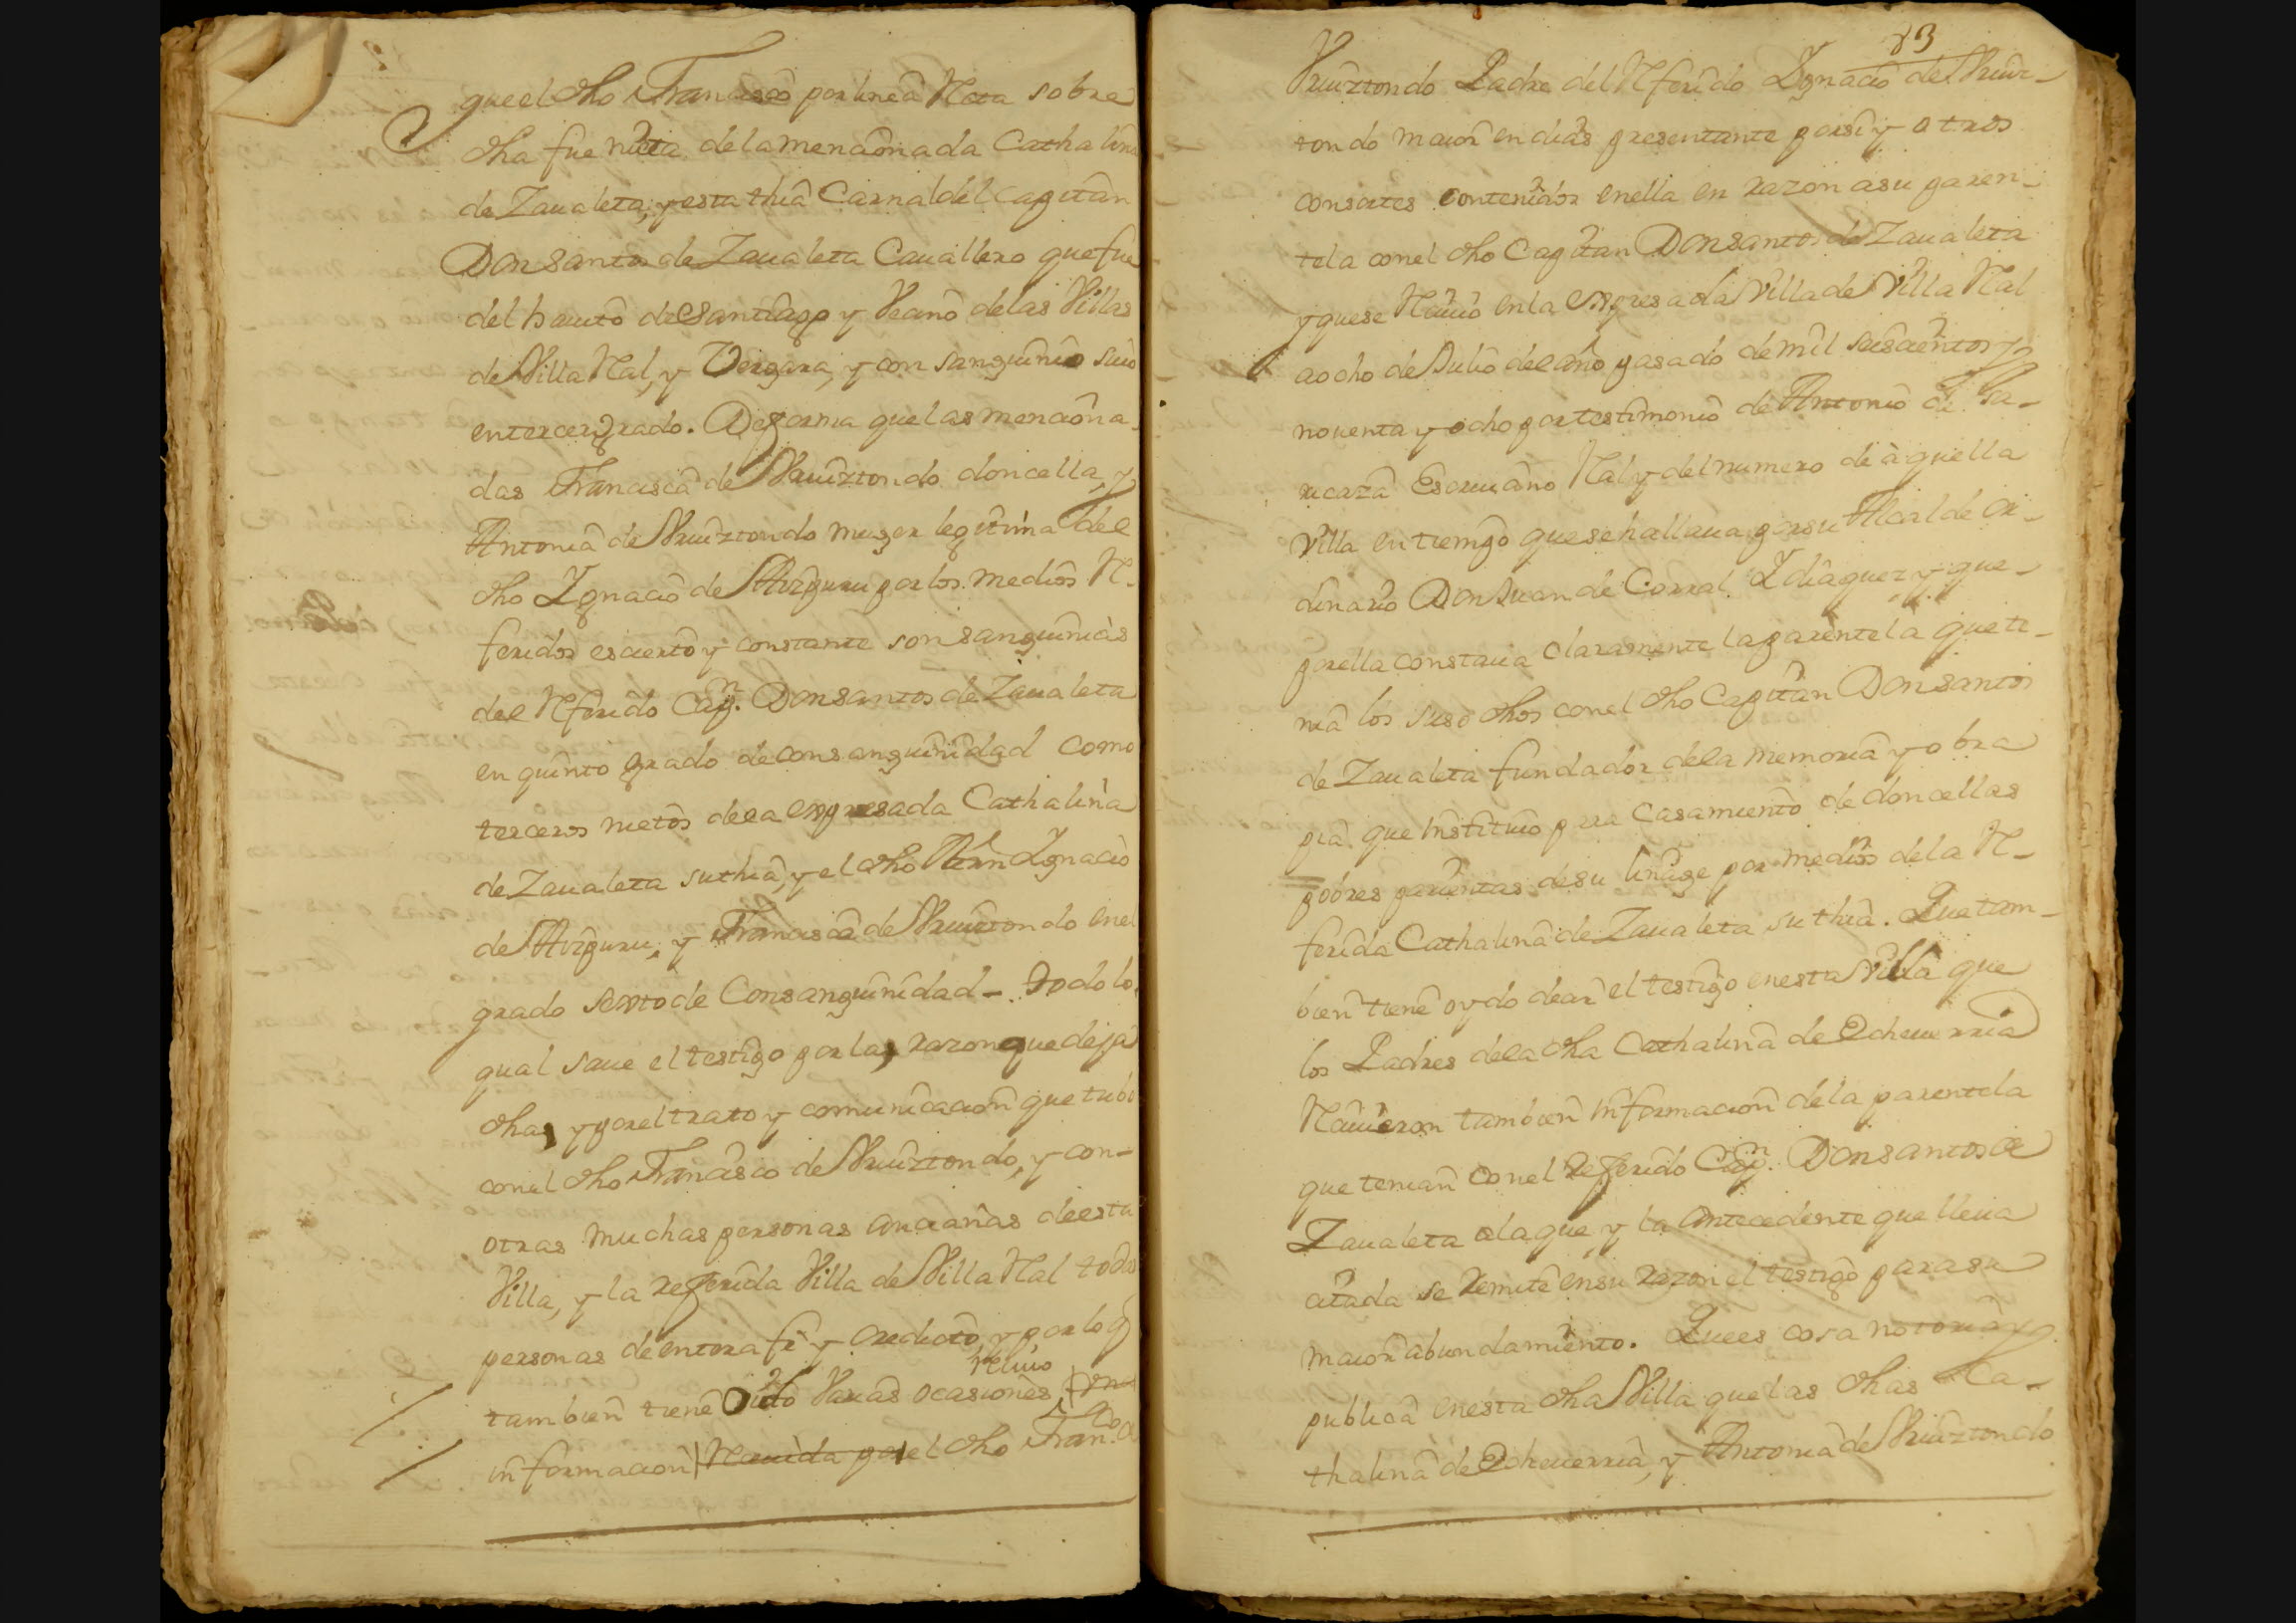 que el dho Francisco por linea Recta sobre
dha fue nieta de la mencionada Cathalina
de Zaualeta, y esta thia Carnal del Capitan
Don Santos de Zaualeta Cauallero que fue
del hauito de Santiago y Vecino de las Villas
de Villa Rl, y Vergara, y con sanguineo suio
en tercer grado. De forma que las menciona-
das Francisca de Vruiztondo doncella, y
Antonia de Vruiztondo muger legitima del
dho Ignacio de Aizpuru por los medios Re-
feridos es cierto y constante son sanguineas
del Referido Capn. Don Santos de Zaualeta
en quinto grado de consanguinidad como
terceros nietos de la expresada Cathalina
de Zaualeta su thia, y el dho Ignacio
de Aizpuru, y Francisca de Vruiztondo en el
grado sexto de Consanguinidad - Todo lo
qual saue el testigo por la razon que deja
dha, y por el trato y comunicacion que tubo
con el dho Francisco de Vruiztondo, y con-
otras muchas personas ancianas de esta
Villa, y la referida Villa de Villa Rl todas
personas de entera fe y credicto, y por lo q
tambien tiene oido varias ocasiones
reciuio
informacion Reciuida por el dho Franco
83
Vruiztondo Padre del Referido Ignacio de Vruiz-
tondo maior en dias presentante por si y otros
consortes contenidos en ella en razon a su paren-
tela con el dho Capitan Don Santos de Zaualeta
y que se Reciuio en la expresada Villa de Villa Rl
a ocho de Julio del año pasado de mil seiscientos y
nouenta y ocho por testimonio de Antonio de Ga-
ricaza Escriuano Rl y del numero de aquella
Villa en tiempo que se hallaua por su Alcalde or-
dinario Don Juan de Corral Idiaquez y que
por ella constaua claramente la parentela que te-
nia los suso dhos con el dho Capitan Don Santos
de Zaualeta fundador de la memoria y obra
pia que Instituio para Casamiento de doncellas
pobres parientas de su linage por medio de la Re-
ferida Cathalina de Zaualeta su thia. Que tam-
bien tiene oydo decir el testigo en esta Villa que
los Padres de la dha Cathalina de Echeuerria
Reciuieron tambien informacion de la parentela
que tenian con el referido Capn. Don Santos de
Zaualeta a la que y la antecedente que lleua
citada se remite en su razon el testigo para su
maior abundamiento. Que es cosa notoria y
publica en esta dha Villa que las dhas Ca-
thalina de Echeuerria, y Antonia de Vruiztondo